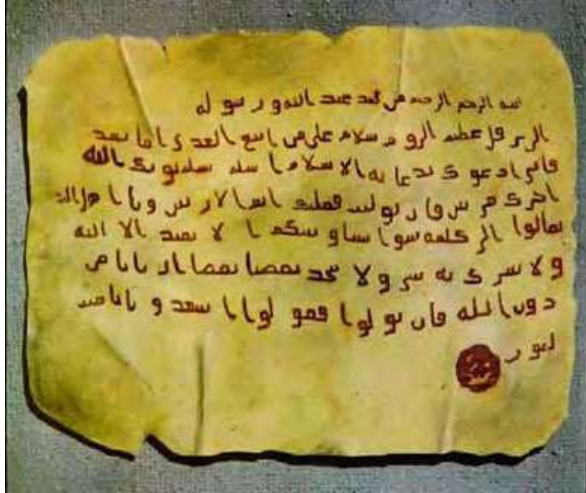 الرحمن الرحيم من محمد عبد الله و رسوله
هرقل عظيم الروم سلام على من اتبع الهدى اما بعد
فانى ادعوك بدعاية الاسلام اسلم تسلم يوتك الله
اجرك مرتين فان توليت فعليك اثم الاريسين ويا اهل
تعالوا الى كلمة سوا بيننا وبينكم ا لا نعبد الا الله
ولا نشرك به شيا ولا يتخذ بعضنا بعضا اربابا من
دون الله فان تولوا فقولوا اشهدوا بانا